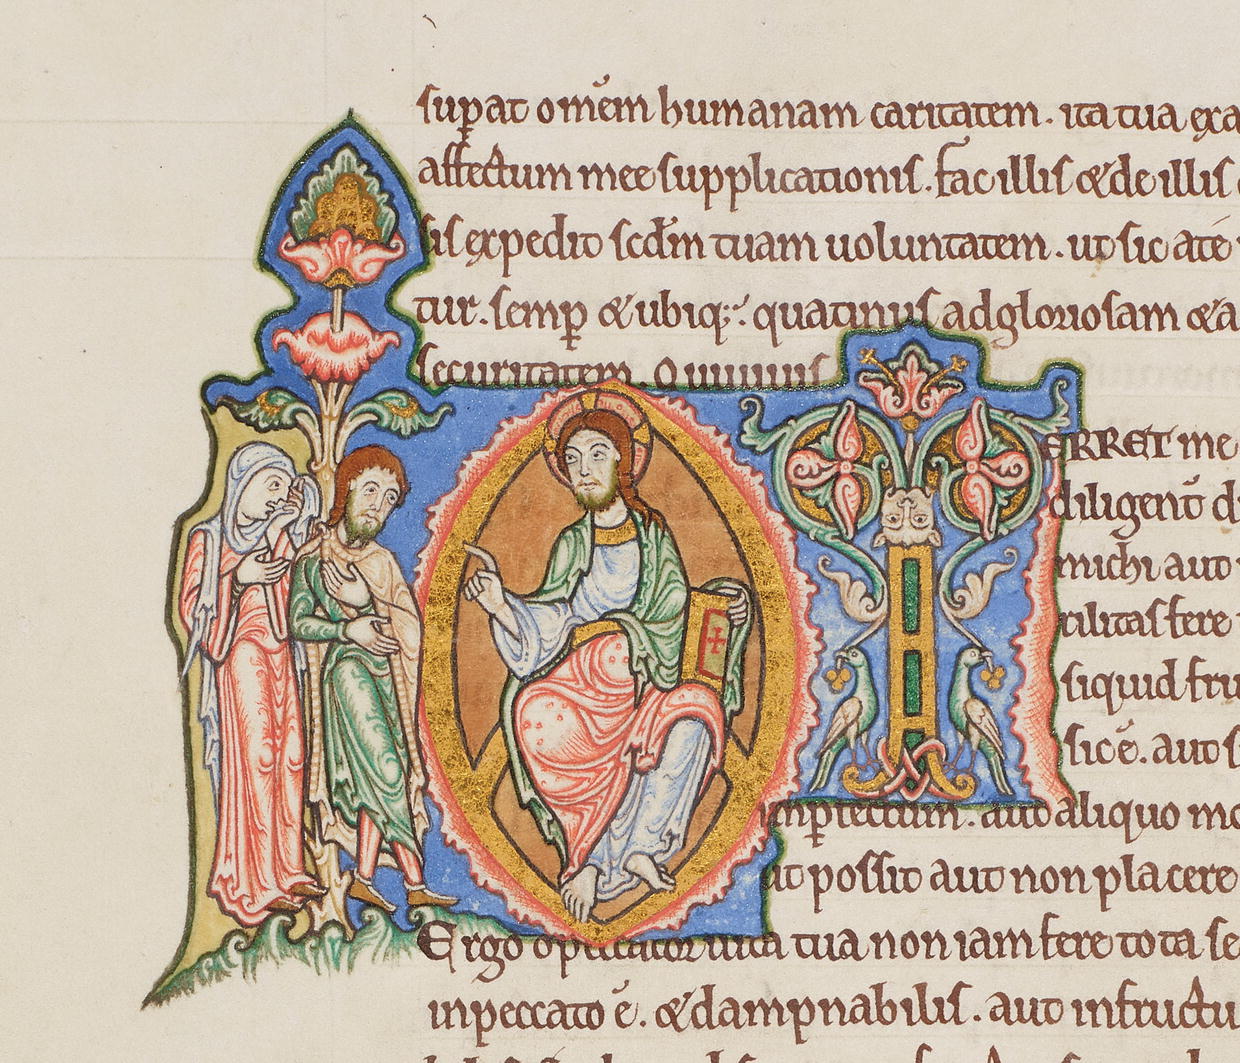 sup̄at om̄em humanam caritatem. ita tua exa
affectum mee supplicationis. fac illis & de illis
sis expedit scdm tuam uoluntatem. ut sic a te
tur. semp & ubiq;: quatinus ad gloriosam & a
securitatem
ERRET me
diligent̄ d
michi aut
rilitas fere
siquid fru
sic ē. aut s
inperfectum. aut aliquo mo
ut possit aut non placere
Ergo o peccator uita tua non iam fere tota se
in peccato ē. & dampnabilis. aut infructu